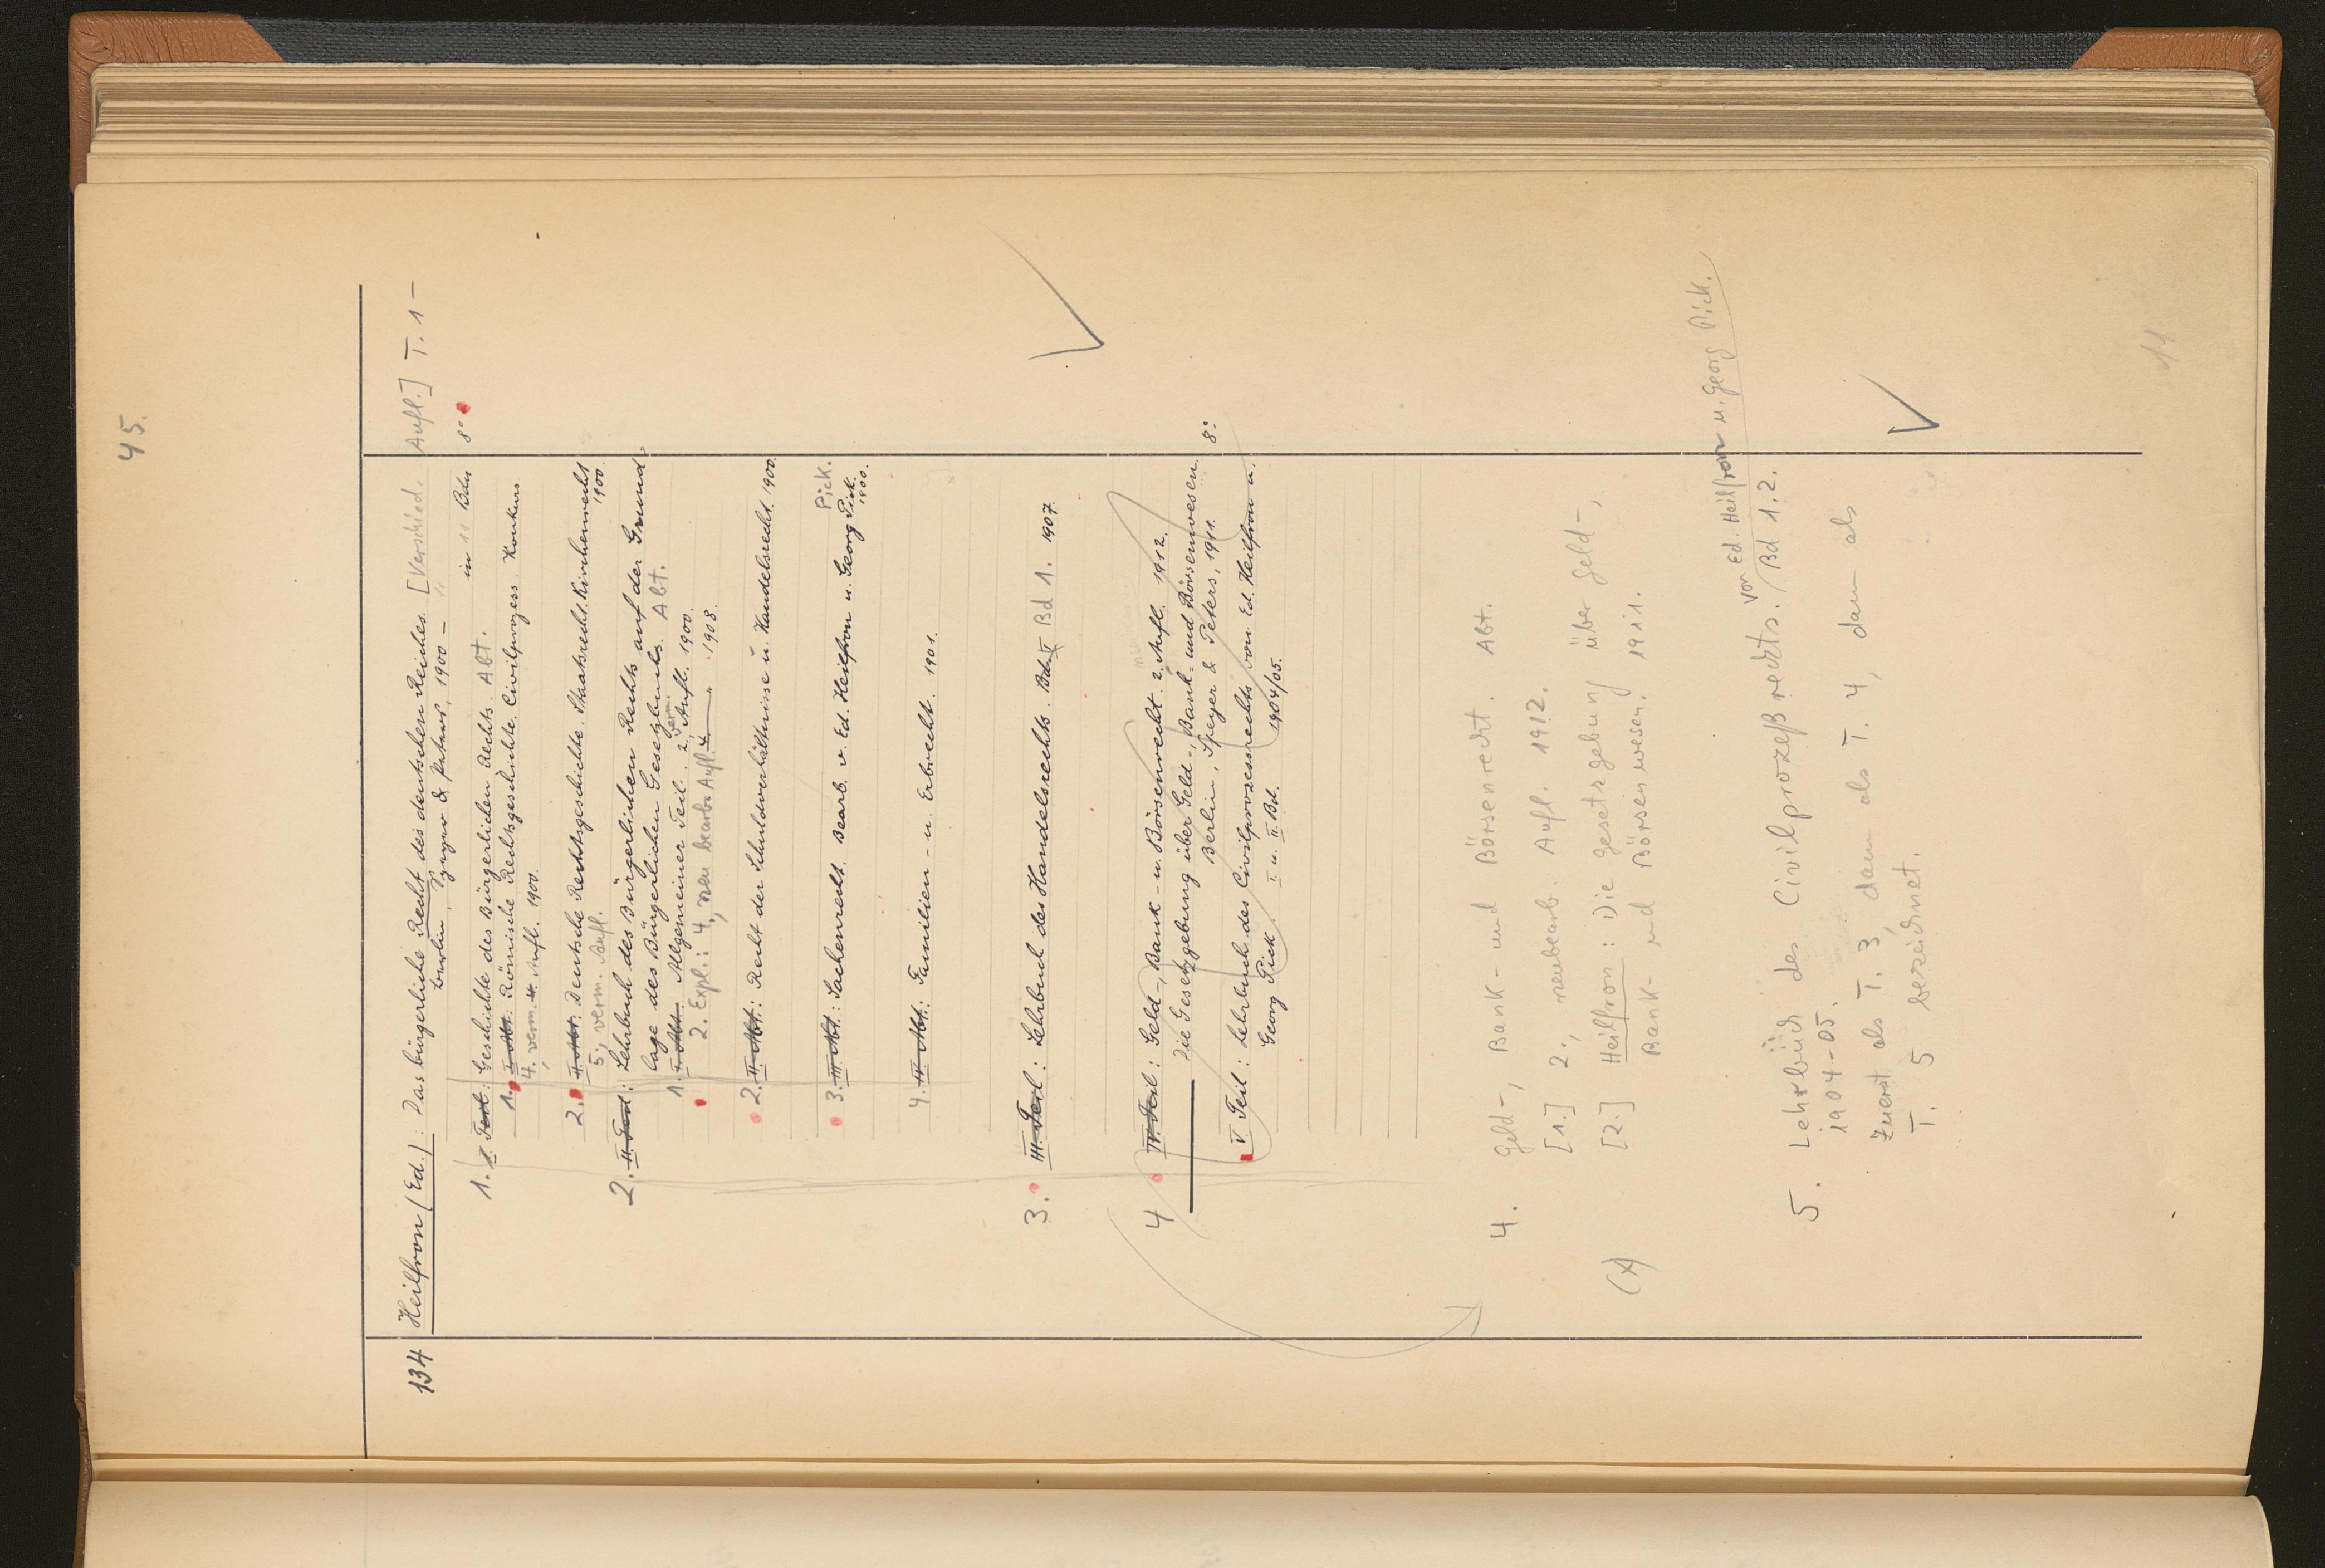 45.
134 Heilfron (Ed.): Das bürgerliche Recht des deutschen Reiches. [Verschied. Aufl.] T. 1 –
Berlin, Speyer & Peters, 1900 – in 11 Bdn 8°
1. I. Teil: Geschichte des Bürgerlichen Rechts. Abt.
1. I. Abt.: Römische Rechtsgeschichte. Civilprozess. Konkurs
4. verm. Aufl. 1900.
2. II. Abt.: Deutsche Rechtsgeschichte. Staatsrecht. Kirchenrecht
5., verm. Aufl. 1900.
2. II. Teil: Lehrbuch des Bürgerlichen Rechts auf der Grund-
lage des Bürgerlichen Gesetzbuchs. Abt.
1. I. Abt. Allgemeiner Teil. 2. Aufl. 1900.
2. Expl.: 4., neu bearb. Aufl. 1908.
2. II. Abt.: Recht der Schuldverhältnisse u. Handelsrecht. 1900.
Pick.
3. III. Abt.: Sachenrecht. Bearb. v. Ed. Heilfron u. Georg Pick.
1900.
4. IV. Abt.: Familien- u. Erbrecht. 1901.
3. III. Teil: Lehrbuch des Handelsrechts. Bd. I Bd 1. 1907.
4 IV. Teil: Geld-, Bank- u. Börsenrecht. 2. Aufl. 1912.
Die Gesetzgebung über Geld-, Bank- und Börsenwesen.
Berlin, Speyer & Peters, 1911. 8°
V Teil: Lehrbuch des Civilprozessrechts von Ed. Heilfron u.
Georg Pick. I. u. II. Bd. 1904/05.
4. Geld-, Bank- und Börsenrecht. Abt.
[1.] 2., neubearb. Aufl. 1912.
(x) [2.] Heilfron: Die Gesetzgebung über Geld-,
Bank- und Börsenwesen. 1911.
von Ed. Heilfron u. Georg Pick.
5. Lehrbuch des Civilprozeßrechts. Bd 1.2.
1904-05.
Zuerst als T. 3, dann als T. 4, dann als
T. 5 bezeichnet.
11